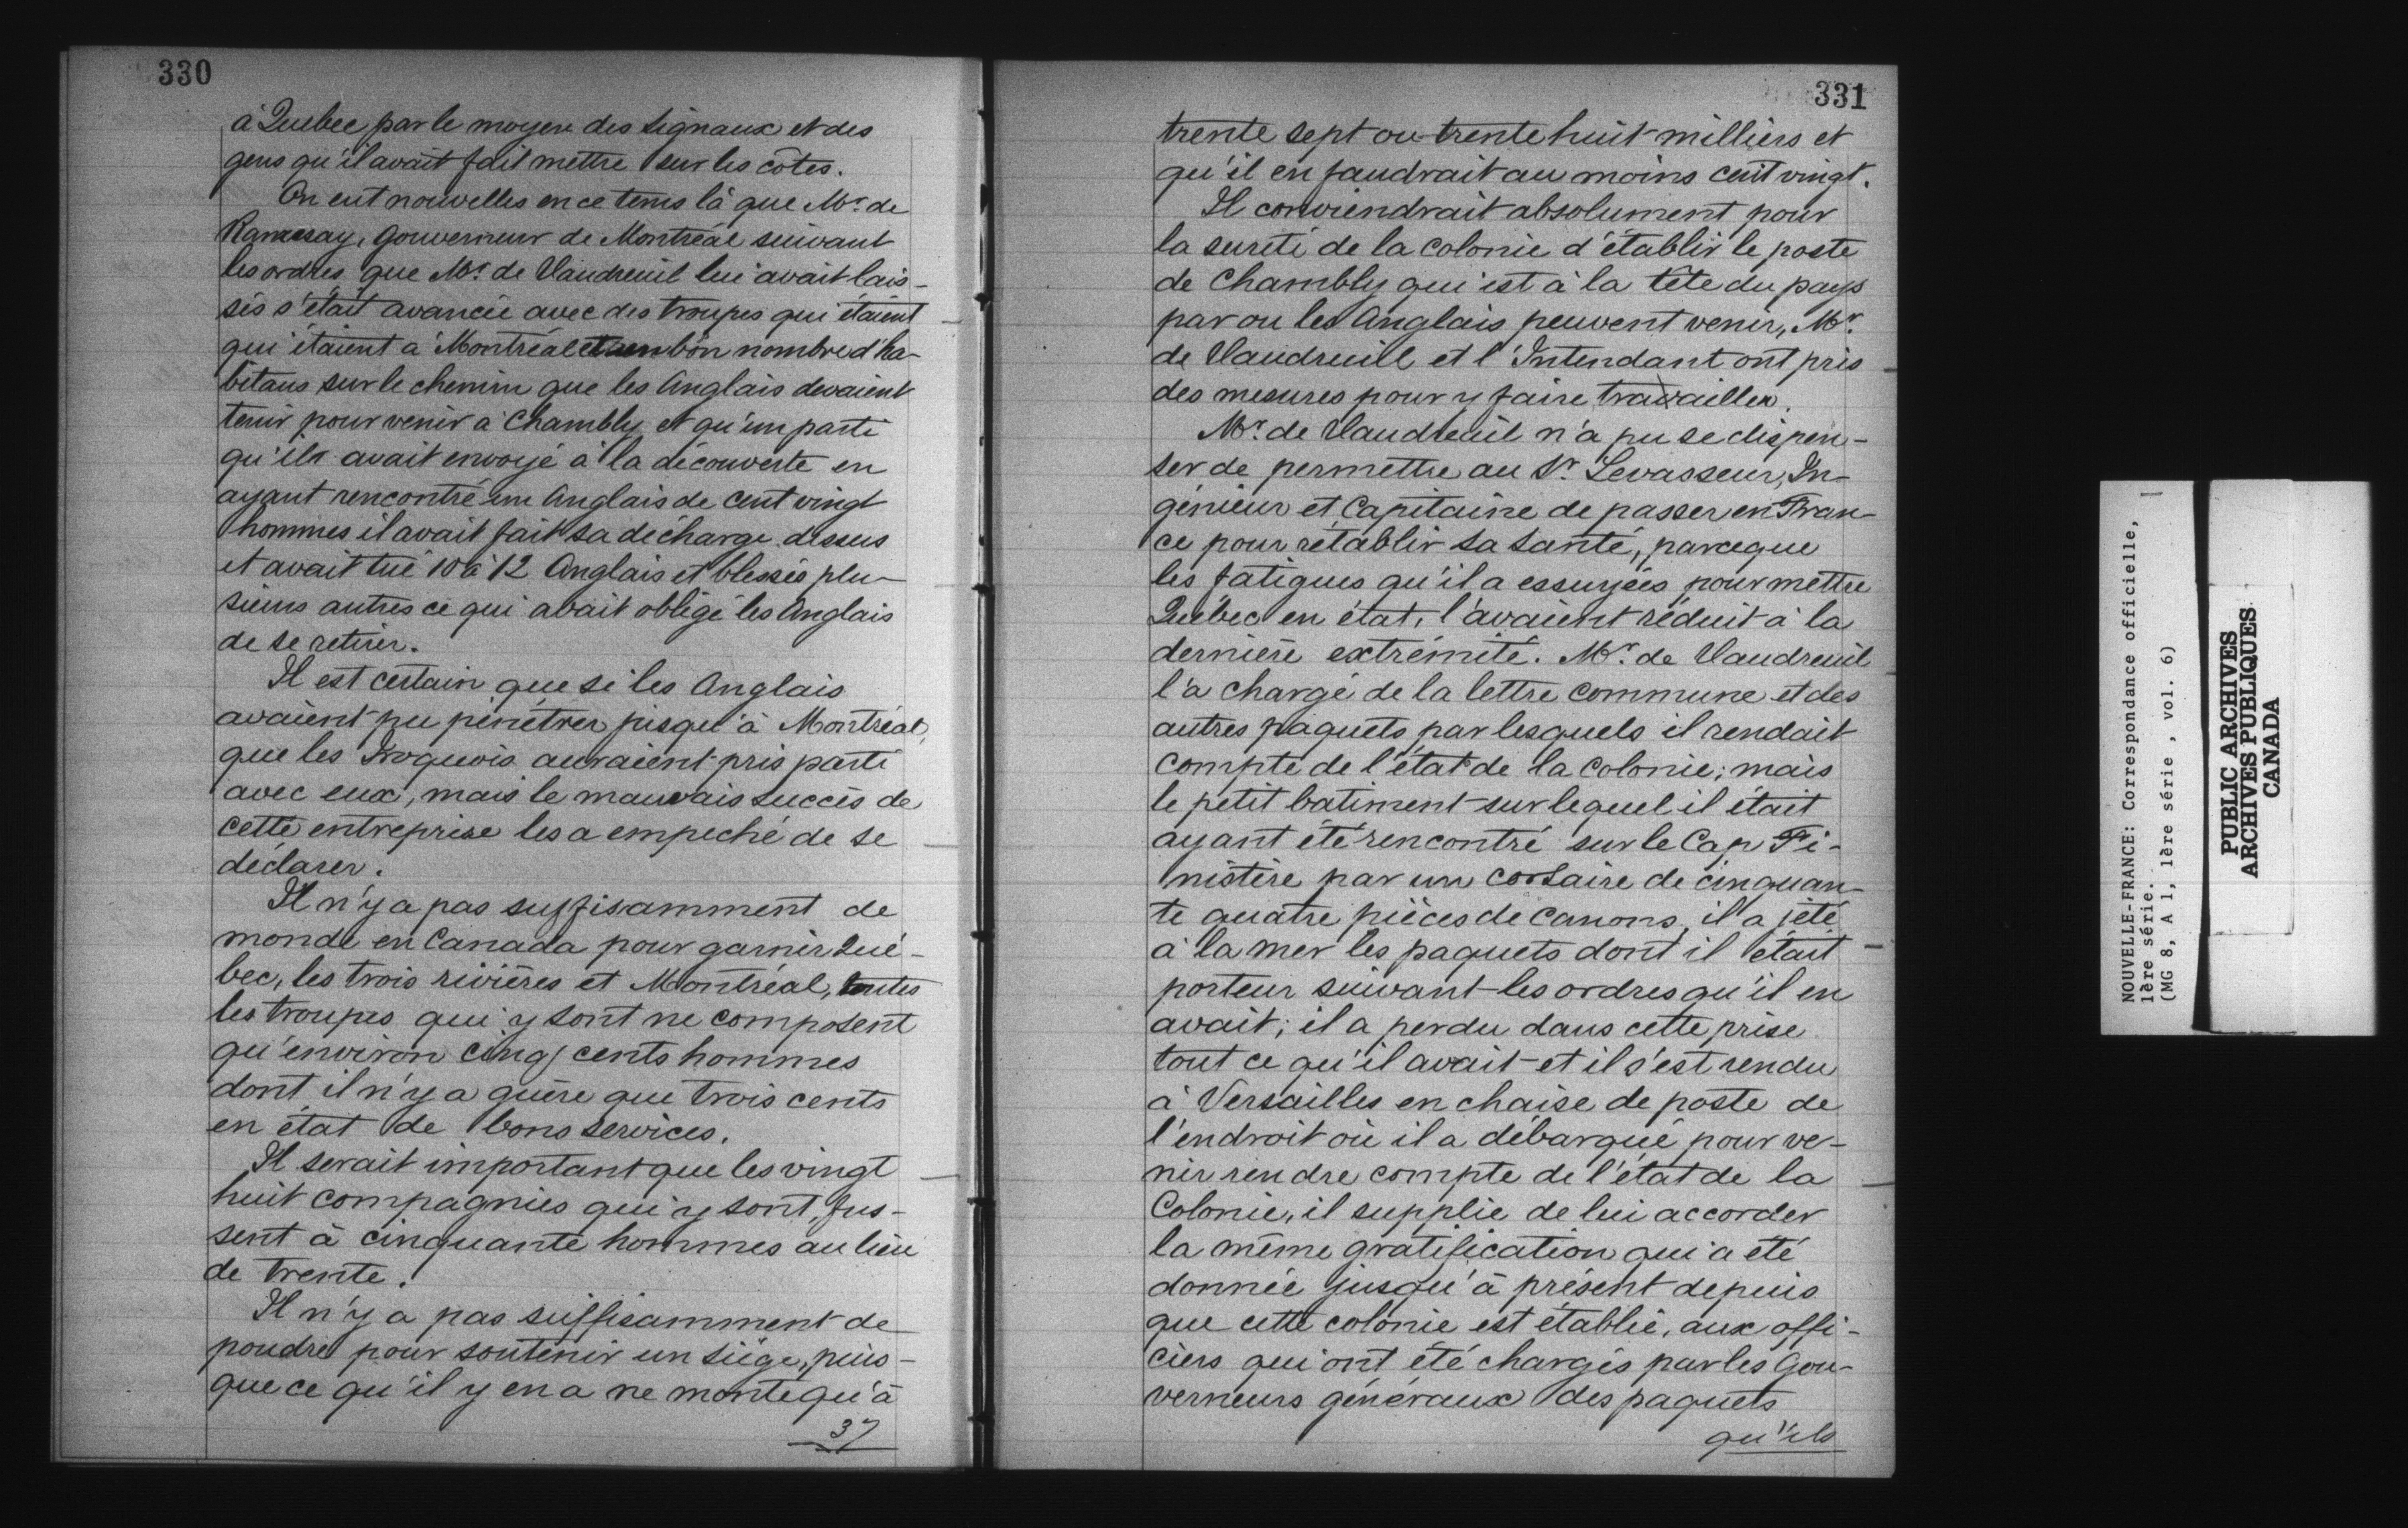 330
à Quebec par le moyen des signaux et des
gens qu'il avait fait mettre sur les côtes.
On eut nouvelles en ce tems là que Mr. de
Ramesay, Gouverneur de Montréal suivant
les ordres que Mr. de Vaudreuil lui avait lais-
sés s'était avancée avec des troupes qui étaient
qui étaient à Montréal et un bon nombre d'ha-
bitans sur le chemin que les Anglais devaient
tenir pour venir à Chambly et qu'un parti
qu'ils avait envoyé à la découverte en
ayant rencontré un Anglais de cent vingt
hommes il avait fait sa décharge dessus
et avait tué 10 à 12 Anglais et blessés plu-
sieurs autres ce qui avait obligé les Anglais
de se retirer.
Il est certain que si les Anglais
avaient pu pénétrer jusqu'à Montréal,
que les Iroquois auraient pris parti
avec eux, mais le mauvais succès de
cette entreprise les a empeché de se
déclarer.
Il n'y a pas suffisamment de
monde en Canada pour garnir Qué-
bec, les trois rivières et Montréal, toutes
les troupes qui y sont ne composent
qu'environ cinq cents hommes
dont il n'y a guère que trois cents
en état de bons services.
Il serait important que les vingt
huit compagnies qui y sont, fus-
sent à cinquante hommes au lieu
de trente.
Il n'y a pas suffisamment de
poudre pour soutenir un siège, puis-
que ce qu'il y en a ne monte qu'à
37
331
trente sept ou trente huit milliers et
qu'il en faudrait au moins cent vingt.
Il conviendrait absolument pour
la sureté de la colonie d'établir le poste
de Chambly qui est à la tête du pays
par ou les Anglais peuvent venir, Mr.
de Vaudreuill et l'Intendant ont pris
des mesures pour y faire travailler.
Mr. de Vaudreuil n'a pu se dispen-
ser de permettre au Sr. Levasseur, In-
génieur et Capitaine de passer en Fran-
ce pour rétablir sa santé, parceque
les fatigues qu'il a essuyées pour mettre
Québec en état, l'avaient réduit à la
dernière extrémité. Mr. de Vaudreuil
l'a chargé de la lettre commune et des
autres paquets par lesquels il rendait
compte de l'état de la Colonie; mais
le petit batiment sur lequel il était
ayant été rencontré sur le Cap Fi-
nistère par un corsaire de cinquan-
te quatre pièces de canons, il a jeté
à la mer les paquets dont il était
porteur suivant les ordres qu'il en
avait; il a perdu dans cette prise
tout ce qu'il avait et il s'est rendu
à Versailles en chaise de poste de
l'endroit où il a débarqué pour ve-
nir rendre compte de l'état de la
Colonie, il supplie de lui accorder
la même gratification qui a été
donnée jusqu'à présent depuis
que cette colonie est établie, aux offi-
ciers qui ont été chargés par les Gou-
verneurs généraux des paquets
qu'ils
NOUVELLE-FRANCE: Correspondance officielle,
1ère série.
(MG 8, A 1, 1ère série, vol. 6)
PUBLIC ARCHIVES
ARCHIVES PUBLIQUES
CANADA